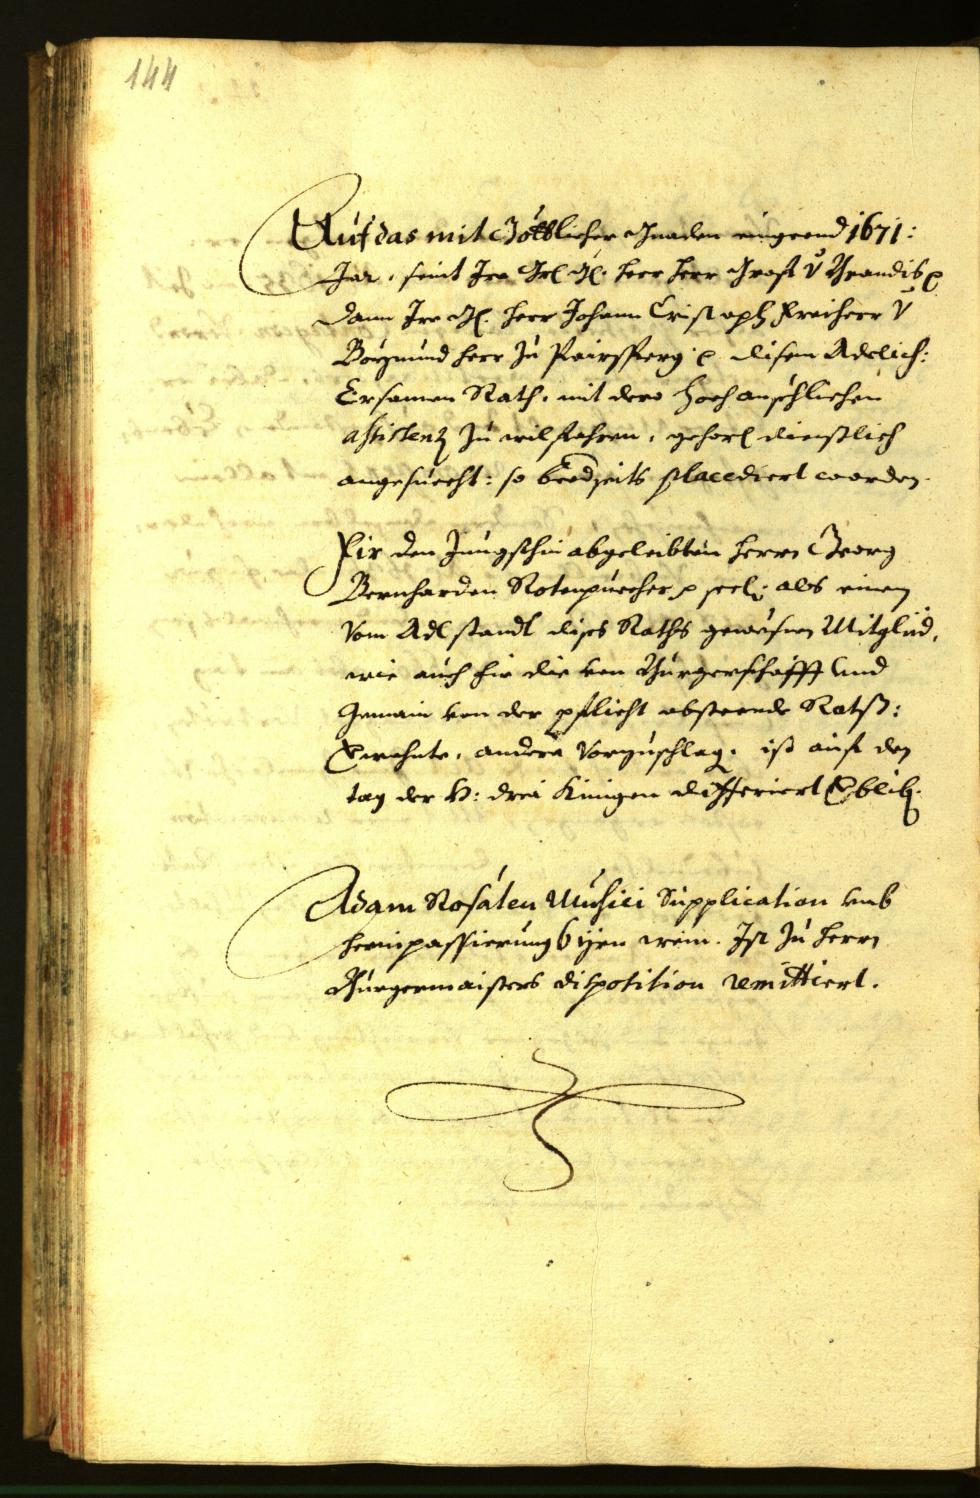 144
Auf das mit Göttlicher Gnaden eingeend 1671:
Jar, seint Ire Hr: G: herr herr Graf v Brandis
dann Ire G: herr Johann Cristoph Freiherr v
Boÿmund herr zu Pairsperg disen Adelich:
Ersamen Rath, mit dero hochanschlichen
assistenz zu wilfahren, gehors dienstlich
angesuecht: so beedseits placediert worden.
Fir den Jungsthin abgeleibten herrn Georg
Bernharden Rotenpuecher seel: als einen
vom Adlstandt dises Raths gewesnen Mitglid,
wie auch fir die von Burgerschafft und
Gemain von der pflicht absteende Ratß:
Erwehnte, andere Vorzuschlag, ist auf den
tag der H: drei Kinigen differiert
Adam Rosaten Musici Supplication umb
hereinpassierung 6 ÿren wein. Ist zu herrn
Burgermaisters disposition remittiert.